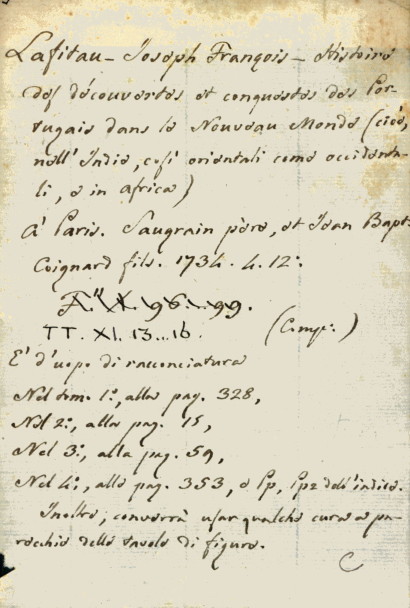 Lafitau - Joseph François - Histoire
des découvertes et conquestes des Por-
tugais dans le Nouveau Monde (cioè,
nell' Indie, così orientali come occidenta-
li, e in africa)
A' Paris. Saugrain père, et Jean Bapt.
Coignard fils. 1734. 4. 12°.
TT. XI. 13...16.
(Comp:)
E' d'uopo di racconciatura
Nel tom. 1°, alla pag. 328,
Nel 2°, alla pag. 15,
Nel 3°, alla pag. 59,
Nel 4°, alla pag. 353, e Pp, Pp2 dell'indice.
Inoltre, converrà usar qualche cura a pa-
recchie delle tavole di figure.
C